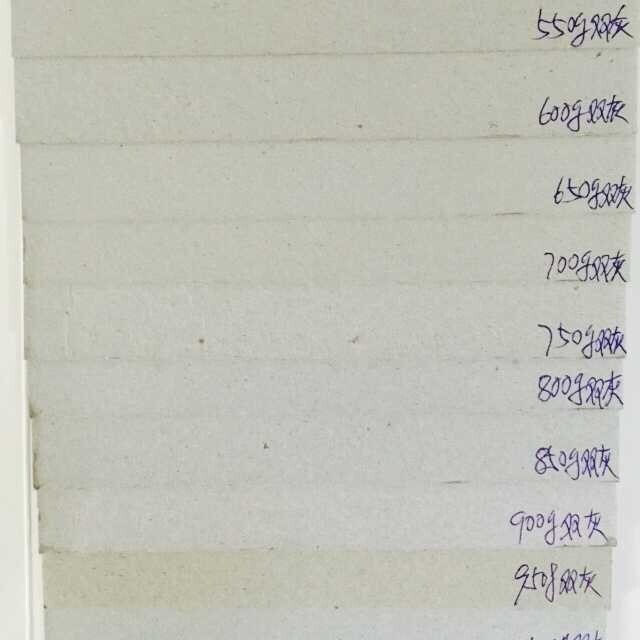 550g双灰
600g双灰
650g双灰
700g双灰
750g双灰
800g双灰
850g双灰
900g双灰
950g双灰